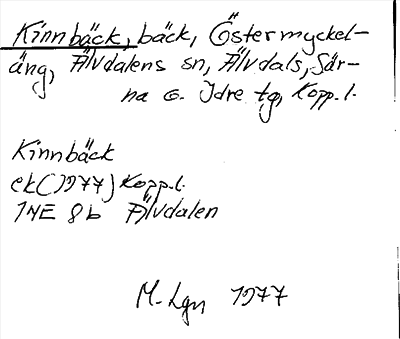 Kinnbäck, bäck, Östermyckel-
äng, Älvdalens sn, Älvdals, Sär-
na o. Idre tg, Kopp. l.
Kinnbäck
ek (1977) Kopp. l.
14E 8b Älvdalen
M-Lgn 1977